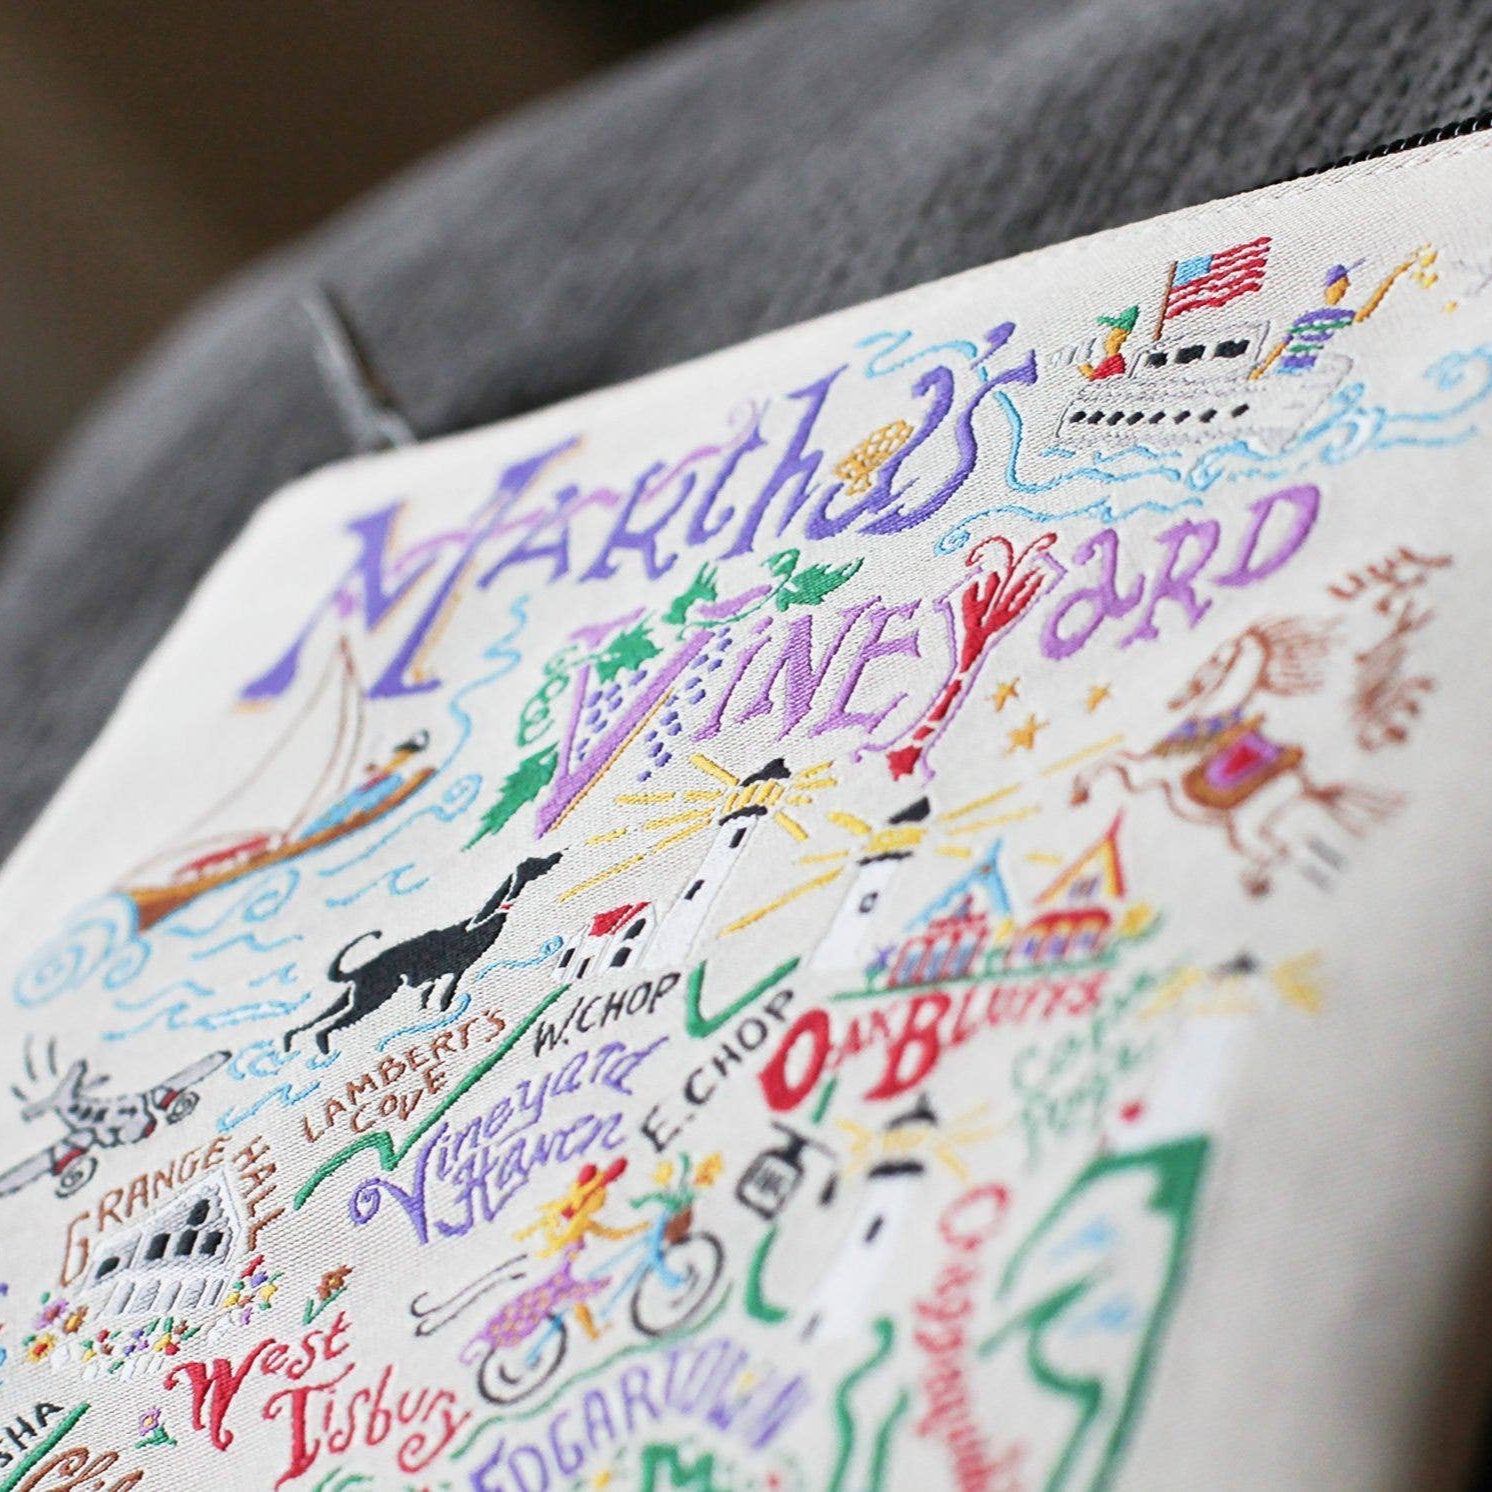 Martha's
Vineyard
W. CHOP
E. CHOP
OAK BLUFFS
LAMBERT'S
COVE
Vineyard
Haven
GRANGE HALL
West
Tisbury
EDGARTOWN